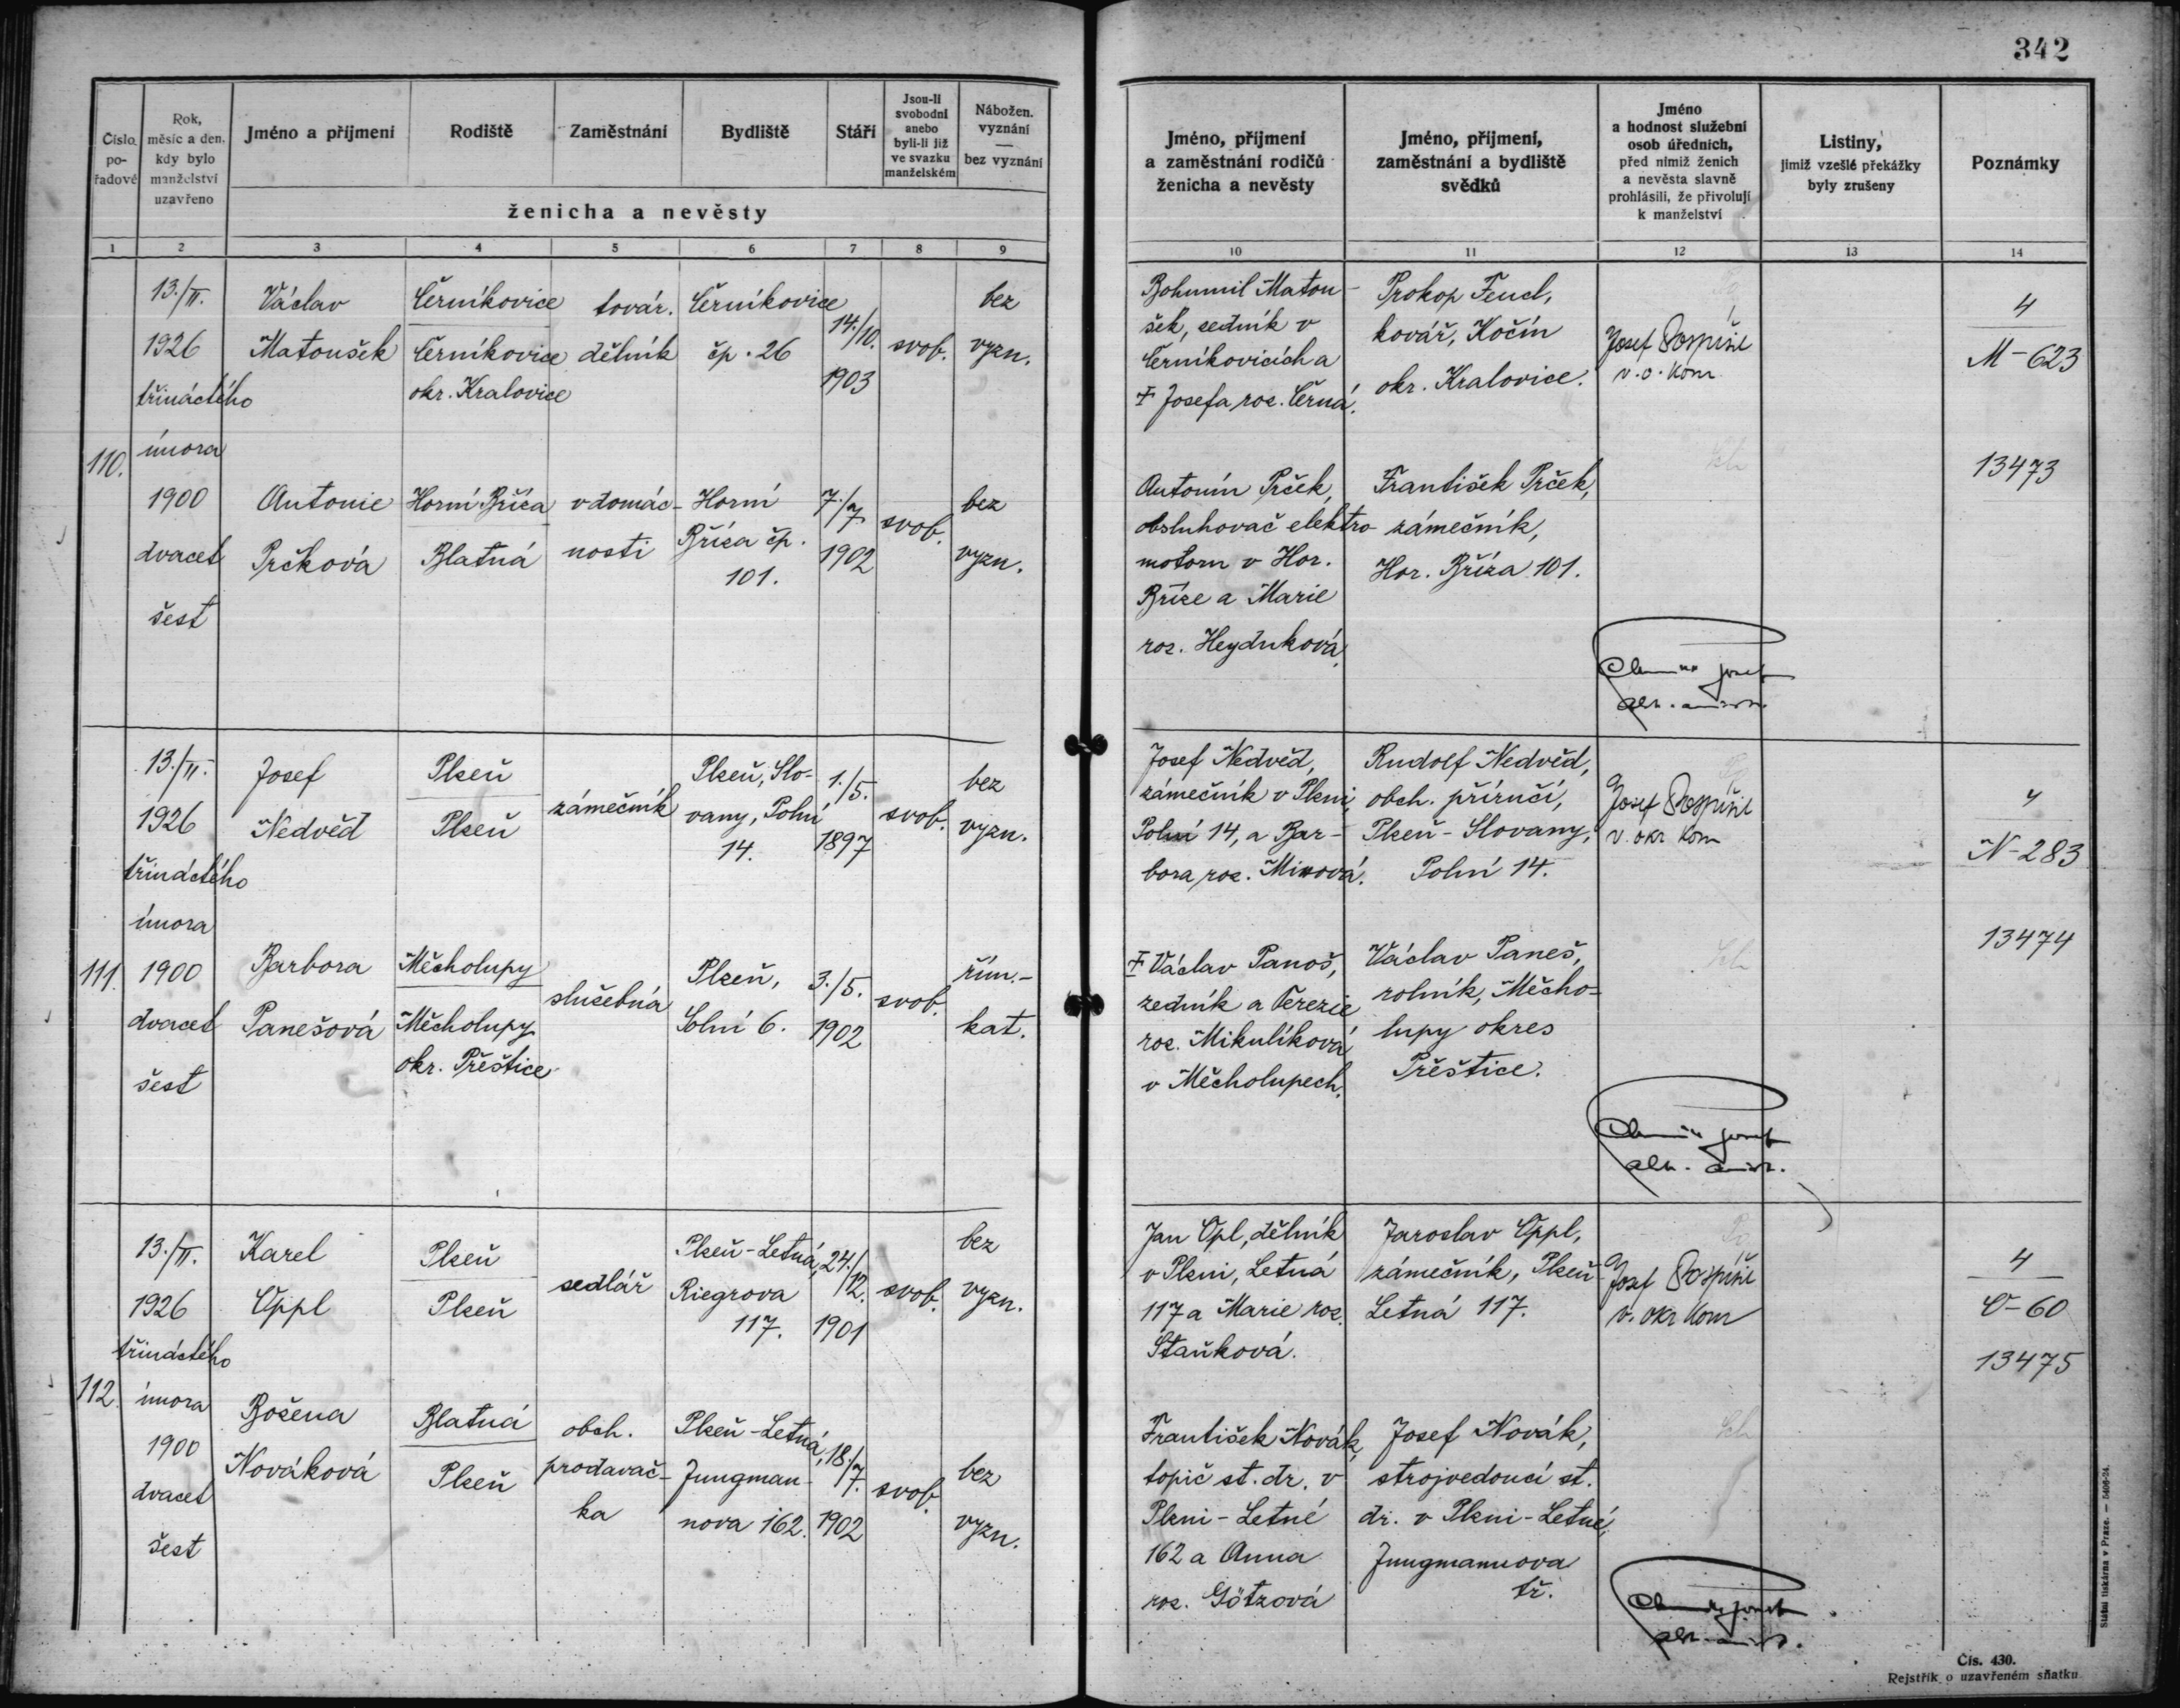 342
Číslo pořadové
Rok, měsíc a den, kdy bylo manželství uzavřeno
Jméno a příjmení
Rodiště
Zaměstnání
Bydliště
Stáří
Jsou-li svobodni anebo byli-li již ve svazku manželském
Nábožen. vyznání — bez vyznání
ženicha a nevěsty
Jméno, příjmení a zaměstnání rodičů ženicha a nevěsty
Jméno, příjmení, zaměstnání a bydliště svědků
Jméno a hodnost služební osob úředních, před nimiž ženich a nevěsta slavně prohlásili, že přivolují k manželství
Listiny, jimiž vzešlé překážky byly zrušeny
Poznámky
1 2 3 4 5 6 7 8 9 10 11 12 13 14
110.
13./II.
1926
třináctého
února
1900
dvacet
šest
Václav
Matoušek
Černíkovice
Černíkovice
okr. Kralovice
továr.
dělník
Černíkovice
čp. 26
14./10.
1903
svob.
bez
vyzn.
Bohumil Matou-
šek, sedník v
Černíkovicích a
± Josefa roz. Černá.
Prokop Fencl,
kovář, Kočín
okr. Kralovice.
Josef Pospíšil
v. o. kom
4
M-623
13473
Antonie
Prčková
Horní Bříza
Blatná
v domác-
nosti
Horní
Bříza čp.
101.
7./7.
1902
svob.
bez
vyzn.
Antonín Prček,
obsluhovač elektro-
motorn v Hor.
Bříze a Marie
roz. Heyduková.
František Prček,
zámečník,
Hor. Bříza 101.
111.
13./II.
1926
třináctého
února
1900
dvacet
šest
Josef
Nedvěd
Plzeň
Plzeň
zámečník
Plzeň, Slo-
vany, Polní
14.
1./5.
1897
svob.
bez
vyzn.
Josef Nedvěd,
zámečník v Plzni,
Polní 14, a Bar-
bora roz. Mixová.
Rudolf Nedvěd,
obch. příručí,
Plzeň - Slovany,
Polní 14.
Josef Pospíšil
v. okr kom
4
N-283
13474
Barbora
Panešová
Měcholupy
Měcholupy
okr. Přeštice
služebná
Plzeň,
Solní 6.
3./5.
1902
svob.
řím.-
kat.
± Václav Panoš,
zedník a Terezie
roz. Mikulíková
v Měcholupech.
Václav Paneš,
rolník, Měcho-
lupy okres
Přeštice.
112.
13./II.
1926
třináctého
února
1900
dvacet
šest
Karel
Oppl
Plzeň
Plzeň
sedlář
Plzeň - Letná,
Riegrova
117.
24./12.
1901
svob.
bez
vyzn.
Jan Opl, dělník
v Plzni, Letná
117 a Marie roz.
Staňková.
Jaroslav Oppl,
zámečník, Plzeň
Letná 117.
Josef Pospíšil
v. okr kom
4
O-60
13475
Božena
Nováková
Blatná
Plzeň
obch.
prodavač-
ka
Plzeň - Letná,
Jungman-
nova 162.
18./7.
1902
svob.
bez
vyzn.
František Novák,
topič st. dr. v
Plzni - Letné
162 a Anna
roz. Götzová
Josef Novák,
strojvedoucí st.
dr. v Plzni - Letné,
Jungmannova
tř.
Státní tiskárna v Praze. — 5406-24.
Čís. 430.
Rejstřík o uzavřeném sňatku